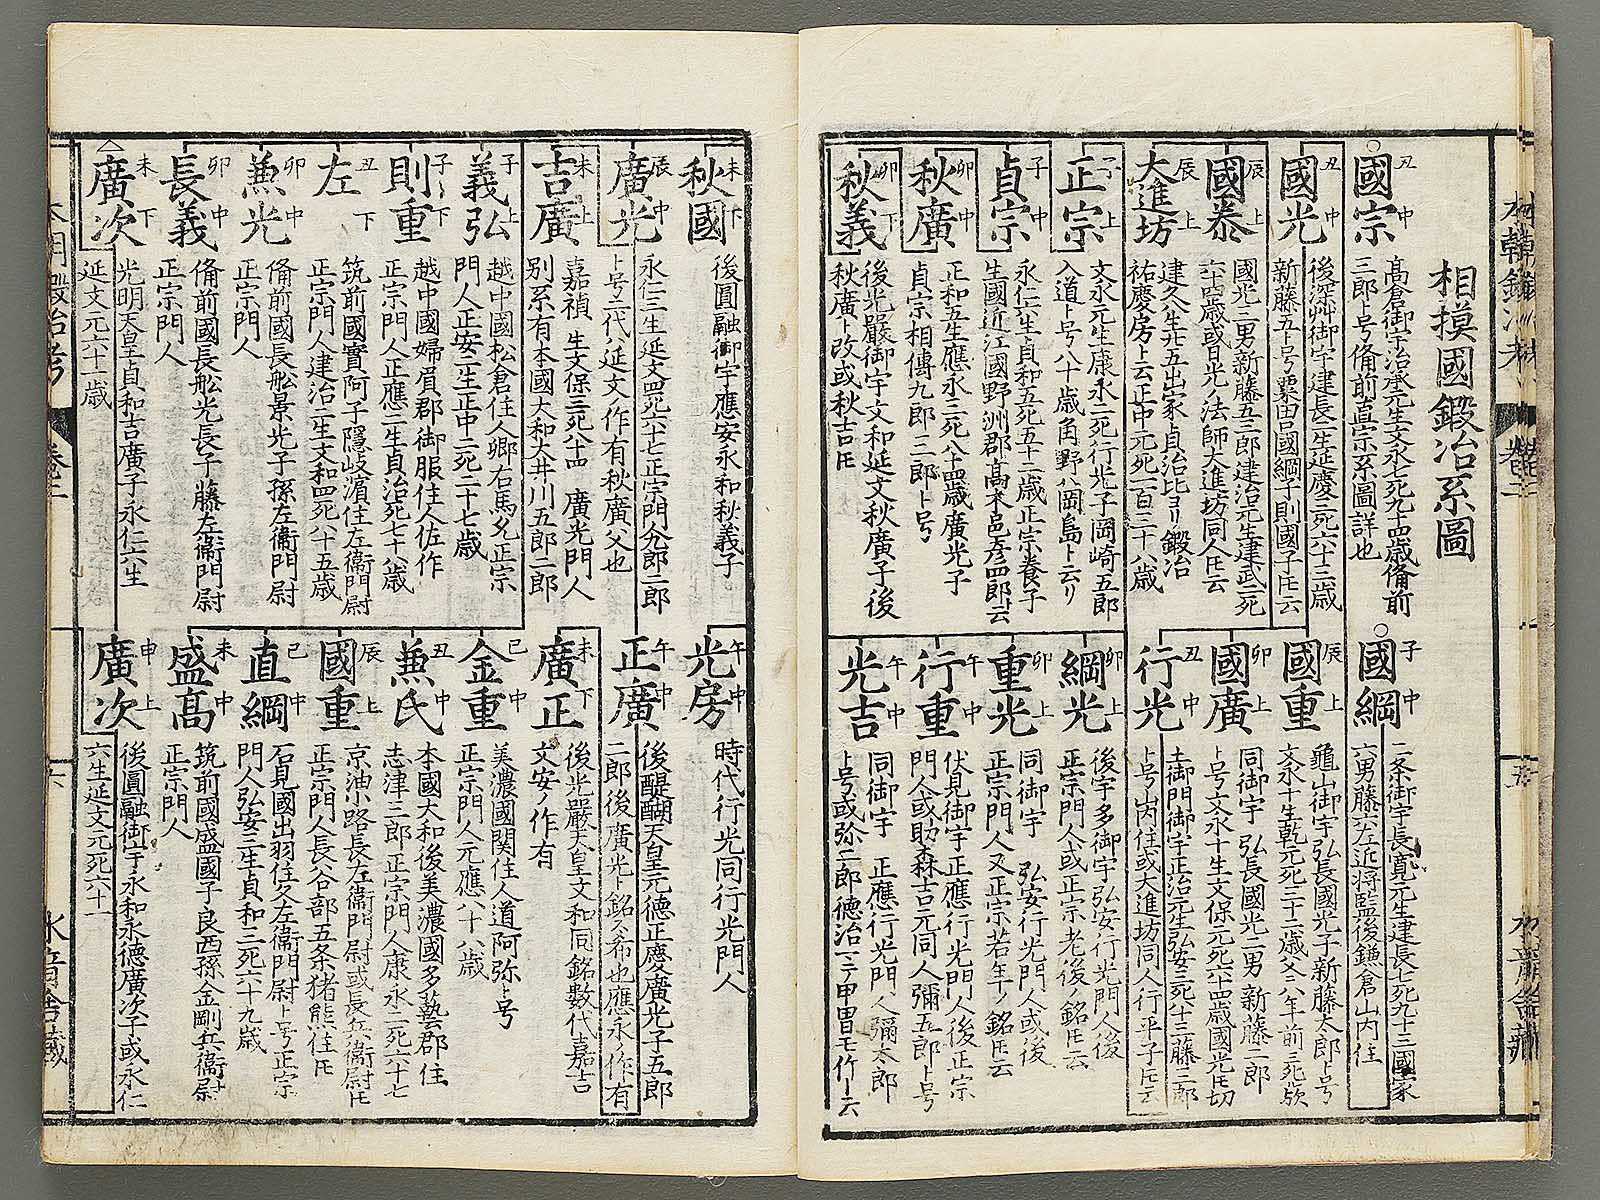 相摸國鍛冶系圖
丑 國宗 中
髙倉御宇治承元生文永七死九十四歳俻前
三郎ト号俻前直宗系圖詳也
丑 國光 中
後深艸御宇建長二生延慶三死六十三歳
新藤五ト号粟田口國綱子則國子𪜈云
辰 國泰 上
國光三男新藤五三郎建治元生建武二死
六十四歳或日光ノ法師大進坊同人𪜈云
辰 大進坊 上
建久八生廿五出家貞治比ヨリ鍛冶
祐慶房ト云正中元死一百二十八歳
子 正宗 上
文永元生康永二死行光子岡崎五郎
入道ト号八十歳角野八岡島ト云リ
子 貞宗 中
永仁六生貞和五死五十二歳正宗養子
生國近江國野洲郡髙木邑彦四郎𪜈云
卯 秋廣 中
正和五生應永二死八十四歳廣光子
貞宗相傳九郎三郎ト号
卯 秋義 下
後光嚴御宇文和延文秋廣子後
秋廣ト改或秋吉𪜈
子 國綱 中
二条御宇長寛元生建長七死九十三國家
六男藤六左近將監後鎌倉山内住
辰 國重 上
龜山御宇弘長國光子新藤太郎ト号
文永十生乾元死三十二歳父六年前ニ死歟
卯 國廣 上
同御宇 弘長國光二男 新藤二郎
ト号文永十生文保元死六十四歳國光𪜈切
丑 行光 中
土御門御宇正治元生弘安三死八十三藤三郎
ト号山内住或大進坊同人行平子𪜈云
卯 綱光 上
後宇多御宇弘安行光門人後
正宗門人或正宗老後ノ銘𪜈云
卯 重光 上
同御宇 弘安行光門人或後
正宗門人又正宗若年ノ銘𪜈云
午 行重 中
伏見御宇正應行光門人後正宗
門人或助森吉元同人彌五郎ト号
午 光吉 中
同御宇 正應行光門人彌太郎
ト号或弥二郎德治
未 秋國 下
後圓融御宇應安永和秋義子
辰 廣光 中
永仁三生延文四死六十七正宗門九郎二郎
ト号二代ハ延文作有秋廣父也
未 吉廣 上
嘉禎 生文保三死八十四 廣光門人
別系有本國大和大井川五郎二郎
子 義弘 上
越中國松倉住人郷右馬允正宗
門人正安二生正中二死二十七歳
子 則重 下
越中國婦眉郡御服住人佐作
正宗門人正應二生貞治死七十八歳
丑 左 下
筑前國實阿子隱岐濵住左衞門尉
正宗門人建治二生文和四死八十五歳
卯 兼光 中
俻前國長舩景光子孫左衞門尉
正宗門人
卯 長義 中
俻前國長舩光長子藤左衞門尉
正宗門人
未 廣次 下
光明天皇貞和吉廣子永仁六生
延文元六十一歳
午 光房 中
時代行光同行光門人
午 正廣 中
後醍醐天皇元德正慶廣光子五郎
二郎後廣光ト銘ス希也應永ノ作有
未 廣正 下
後光嚴天皇文和同銘數代嘉吉
文安ノ作有
巳 金重 中
美濃國関住人道阿弥ト号
正宗門人元應八十八歳
丑 兼氏 中
本國大和後美濃國多藝郡住
志津三郎正宗門人康永二死六十七
辰 國重 上
京油小路長左衞門尉或長兵衞尉𪜈
正宗門人長谷部五条猪熊住𪜈
巳 直綱 中
石見國出羽住久左衞門尉ト号正宗
門人弘安三生貞和二死六十九歳
未 盛髙 中
筑前國盛國子良西孫金剛兵衞尉
正宗門人
申 廣次 上
後圓融御宇永和永德廣次子或永仁
六生延文元死六十一
本朝鍛冶考 卷二 六